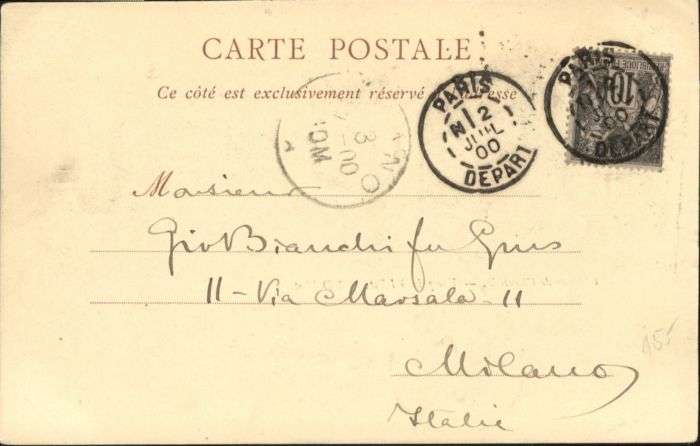 CARTE POSTALE
Ce côté est exclusivement réservé esse
PARIS
N 2
JUIL
00
DEPART
PARIS
00
DEPART
10
3
00
Monsieur
Gio Bianchi fu Gius
11 - Via Marsala - 11
Milano
Italie